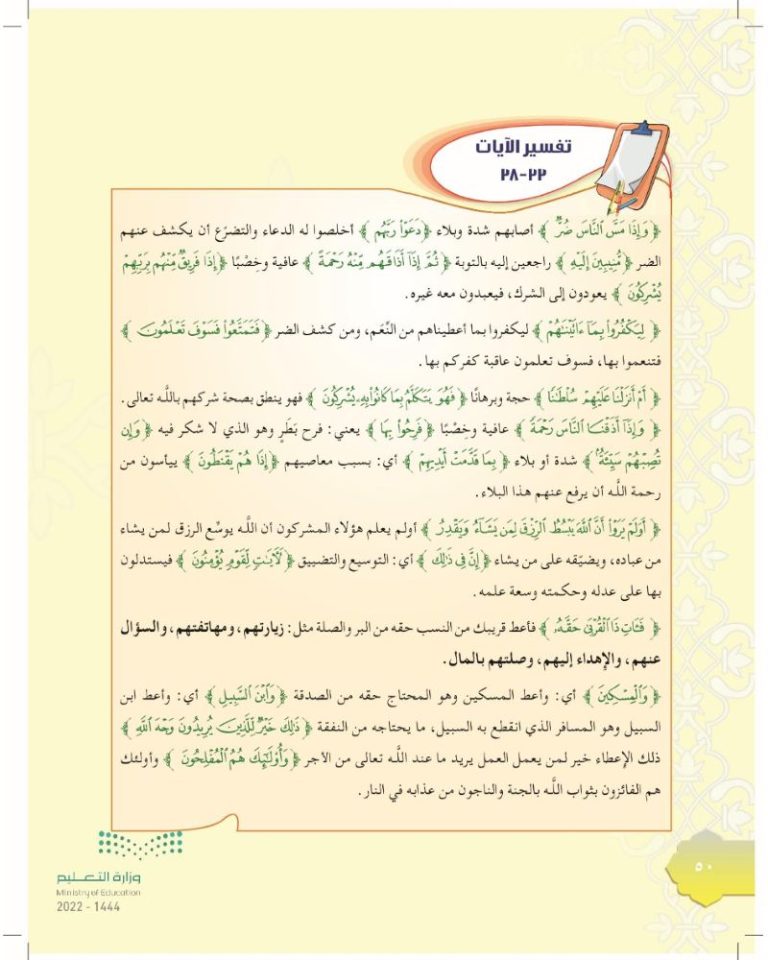 تفسير الآيات
٢٢-٢٨
﴿ وَإِذَا مَسَّ ٱلنَّاسَ ضُرٌّ ﴾ أصابهم شدة وبلاء ﴿ دَعَوْا۟ رَبَّهُم ﴾ أخلصوا له الدعاء والتضرّع أن يكشف عنهم
الضر ﴿ مُّنِيبِينَ إِلَيْهِ ﴾ راجعين إليه بالتوبة ﴿ ثُمَّ إِذَآ أَذَاقَهُم مِّنْهُ رَحْمَةً ﴾ عافية وخِصْبًا ﴿ إِذَا فَرِيقٌ مِّنْهُم بِرَبِّهِمْ
يُشْرِكُونَ ﴾ يعودون إلى الشرك، فيعبدون معه غيره.
﴿ لِيَكْفُرُوا۟ بِمَآ ءَاتَيْنَٰهُمْ ﴾ ليكفروا بما أعطيناهم من النِّعَم، ومن كشف الضر ﴿ فَتَمَتَّعُوا۟ فَسَوْفَ تَعْلَمُونَ ﴾
فتنعموا بها، فسوف تعلمون عاقبة كفركم بها.
﴿ أَمْ أَنزَلْنَا عَلَيْهِمْ سُلْطَٰنًا ﴾ حجة وبرهانًا ﴿ فَهُوَ يَتَكَلَّمُ بِمَا كَانُوا۟ بِهِۦ يُشْرِكُونَ ﴾ فهو ينطق بصحة شركهم باللَّه تعالى.
﴿ وَإِذَآ أَذَقْنَا ٱلنَّاسَ رَحْمَةً ﴾ عافية وخِصْبًا ﴿ فَرِحُوا۟ بِهَا ﴾ يعني: فرح بَطَرٍ وهو الذي لا شكر فيه ﴿ وَإِن
تُصِبْهُمْ سَيِّئَةٌۢ ﴾ شدة أو بلاء ﴿ بِمَا قَدَّمَتْ أَيْدِيهِمْ ﴾ أي: بسبب معاصيهم ﴿ إِذَا هُمْ يَقْنَطُونَ ﴾ ييأسون من
رحمة اللَّه أن يرفع عنهم هذا البلاء.
﴿ أَوَلَمْ يَرَوْا۟ أَنَّ ٱللَّهَ يَبْسُطُ ٱلرِّزْقَ لِمَن يَشَآءُ وَيَقْدِرُ ﴾ أولم يعلم هؤلاء المشركون أن اللَّه يوسِّع الرزق لمن يشاء
من عباده، ويضيّقه على من يشاء ﴿ إِنَّ فِى ذَٰلِكَ ﴾ أي: التوسيع والتضييق ﴿ لَـَٔايَٰتٍ لِّقَوْمٍ يُؤْمِنُونَ ﴾ فيستدلون
بها على عدله وحكمته وسعة علمه.
﴿ فَـَٔاتِ ذَا ٱلْقُرْبَىٰ حَقَّهُۥ ﴾ فأعط قريبك من النسب حقه من البر والصلة مثل: زيارتهم، ومهاتفتهم، والسؤال
عنهم، والإهداء إليهم، وصلتهم بالمال.
﴿ وَٱلْمِسْكِينَ ﴾ أي: وأعط المسكين وهو المحتاج حقه من الصدقة ﴿ وَٱبْنَ ٱلسَّبِيلِ ﴾ أي: وأعط ابن
السبيل وهو المسافر الذي انقطع به السبيل، ما يحتاجه من النفقة ﴿ ذَٰلِكَ خَيْرٌ لِّلَّذِينَ يُرِيدُونَ وَجْهَ ٱللَّهِ ﴾
ذلك الإعطاء خير لمن يعمل العمل يريد ما عند اللَّه تعالى من الآجر ﴿ وَأُو۟لَٰٓئِكَ هُمُ ٱلْمُفْلِحُونَ ﴾ وأولئك
هم الفائزون بثواب اللَّه بالجنة والناجون من عذابه في النار.
٥٠
وزارة التعليم
Ministry of Education
2022 - 1444